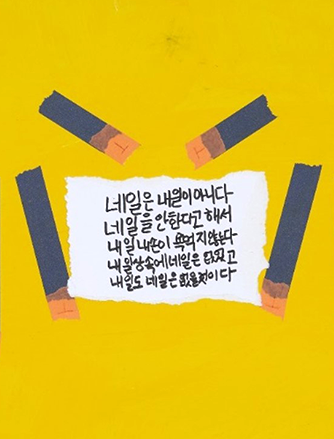 네일은 내일이 아니다
네일을 안한다고 해서
내일 내손이 욕먹지 않는다
내 일상속에 네일은 없었고
내일도 네일은 없을것이다